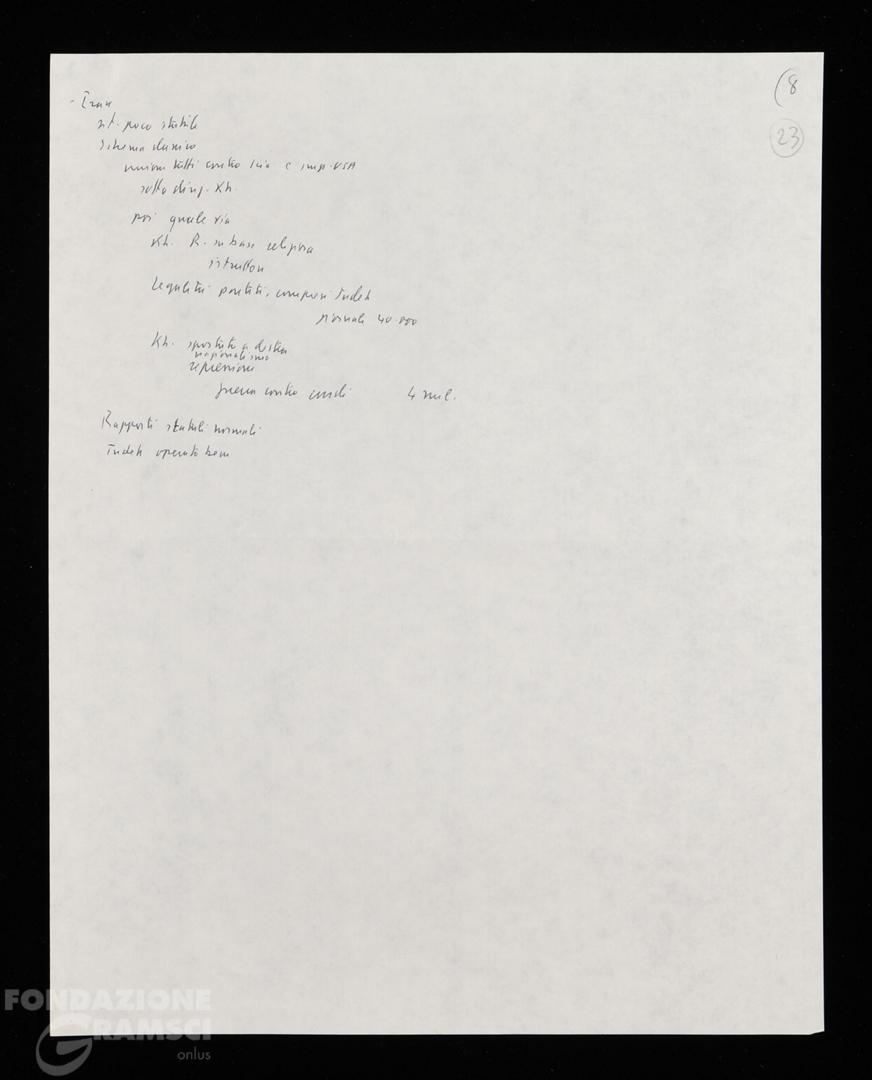 (8
23
- Iran
sit. poco stabile
schema classico
unione tutti contro scià e imp. USA
sotto direz. Kh.
poi quale via
Kh. R. su base religiosa
Legalità partiti, compreso Tudeh
giornale 40.000
Kh. spostato a destra
nazionalismo
repressione
guerra contro curdi 4 mil.
Rapporti statali normali
Tudeh operato bene
FONDAZIONE
GRAMSCI
onlus